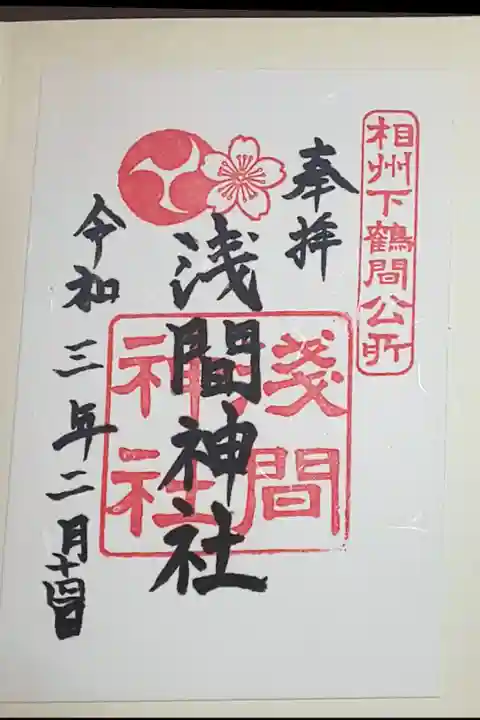 相州下鶴間公所
奉拝
浅間神社
淺間
神社
令和三年二月十四日